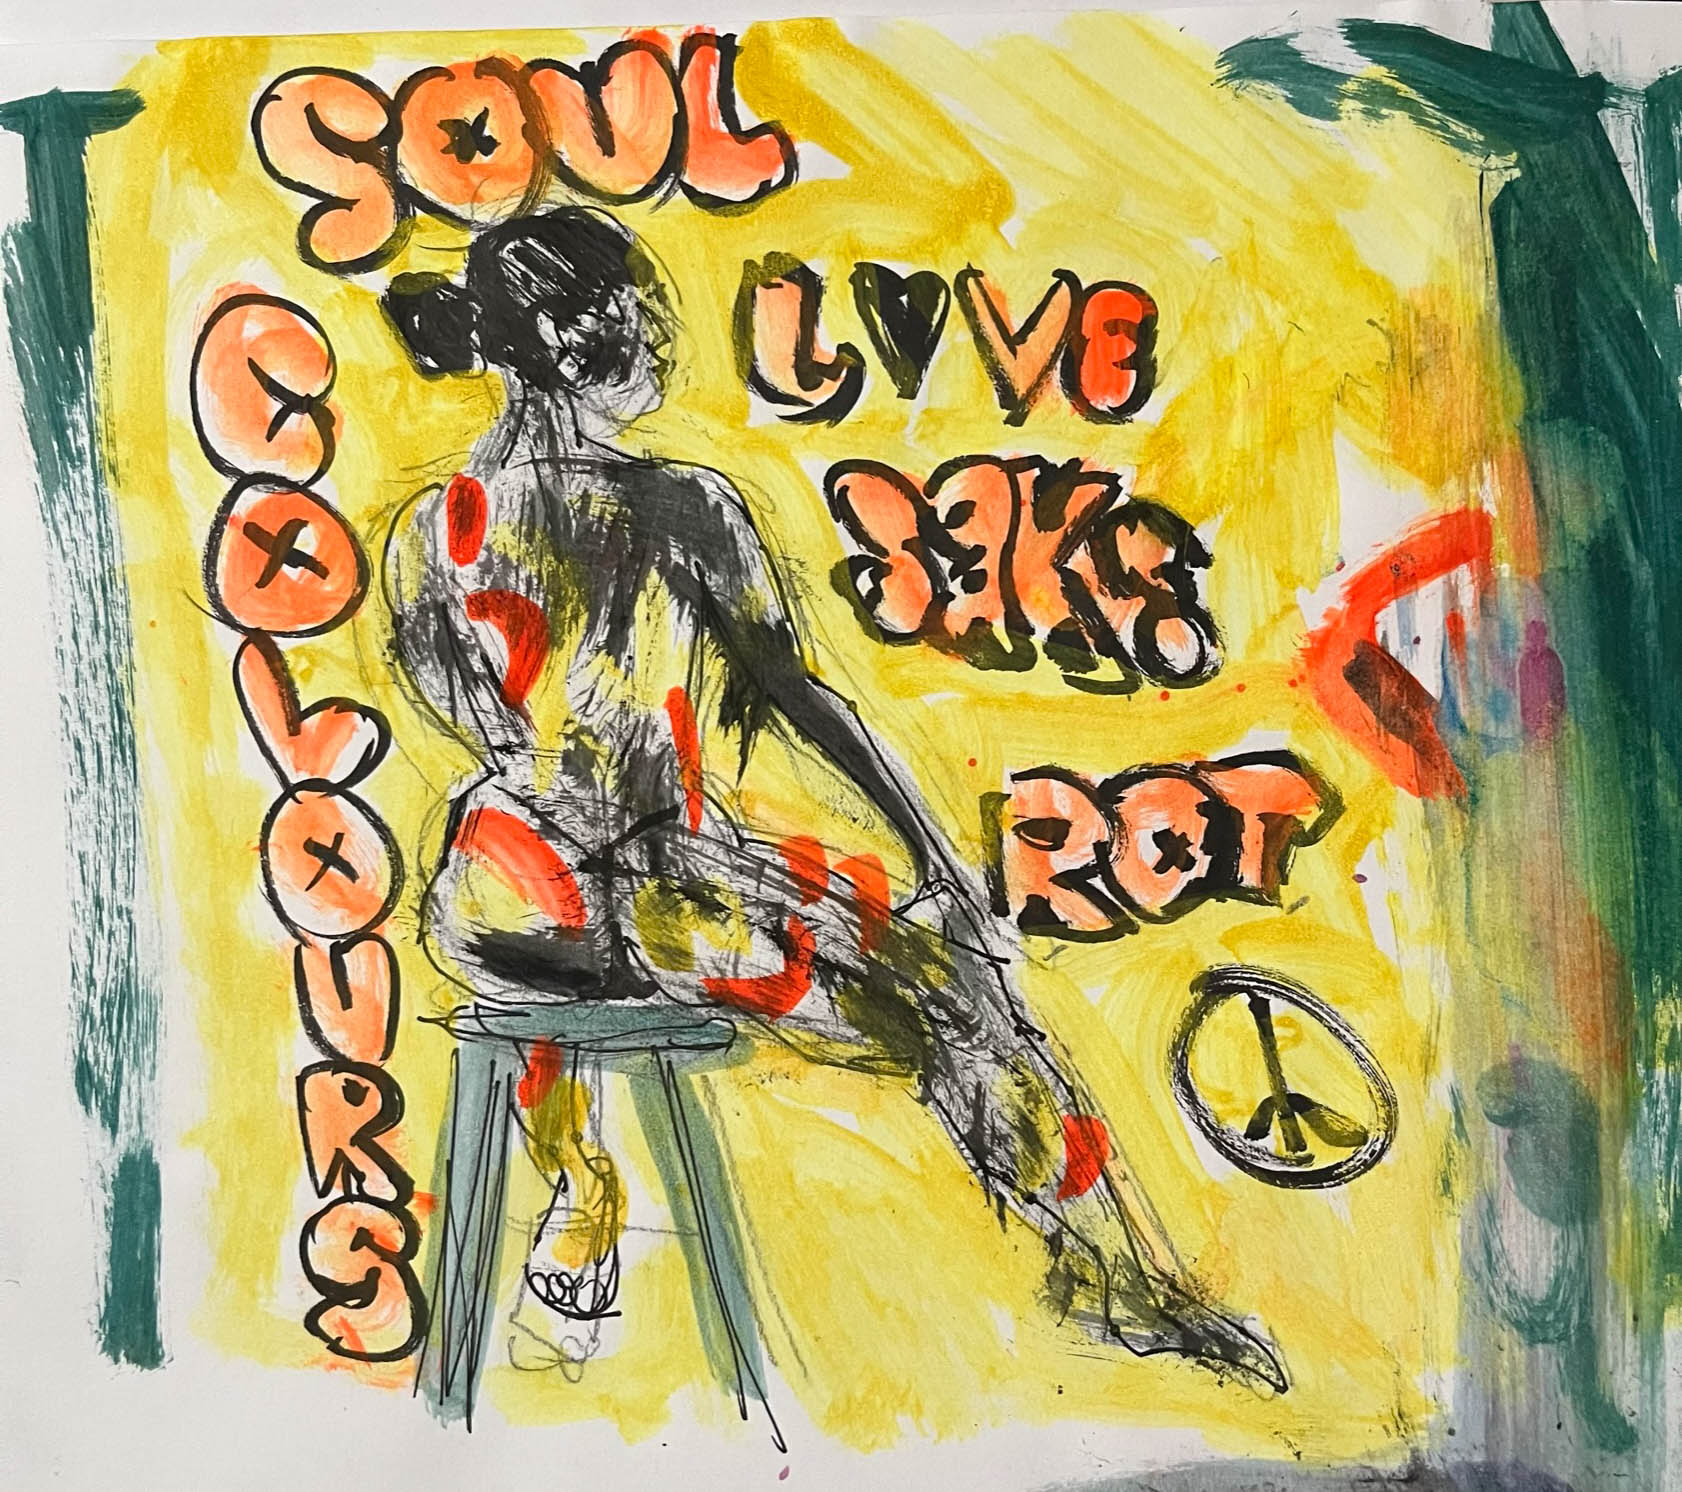 SOUL
COLOURS
L♥VE
ROT